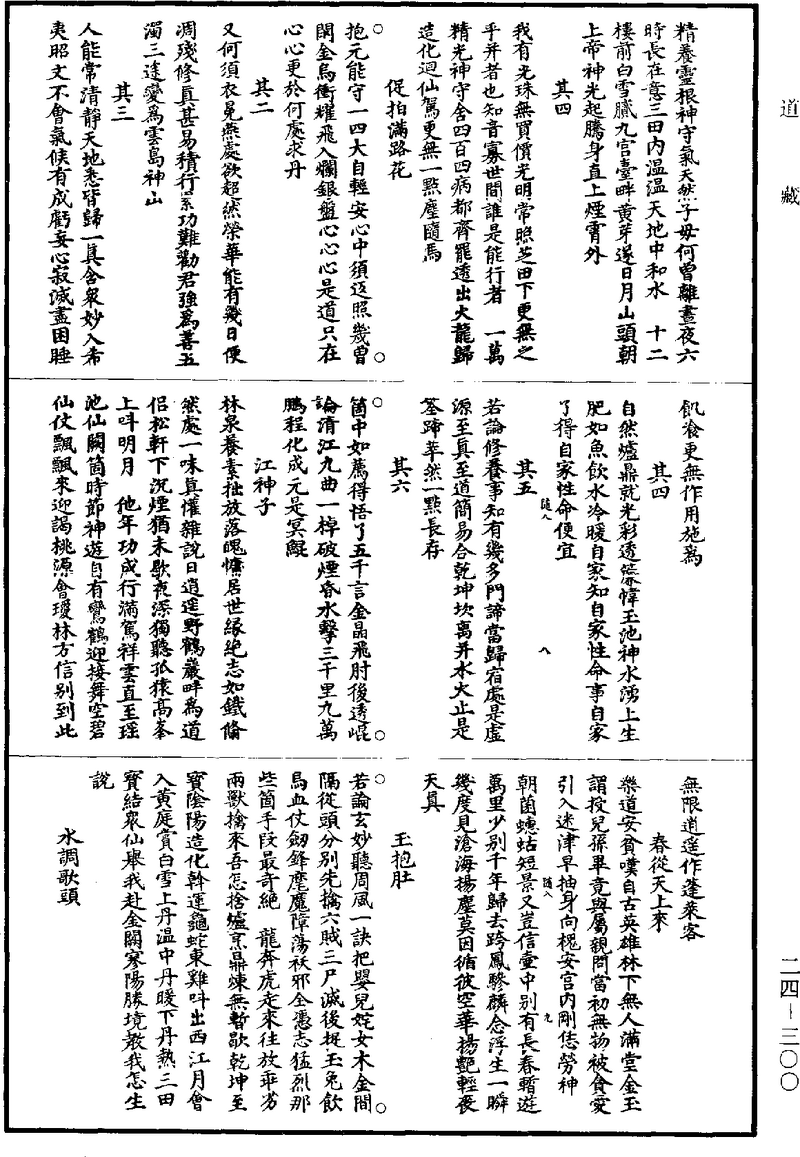 道藏
精養靈根神守氣天然子母何曾離晝夜六
時長在意三田內溫溫天地中和水　十二
樓前白雪膩九宮臺畔黃芽遂日月山頭朝
上帝神光起騰身直上煙霄外
其四
我有光珠無買價光明常照芝田下更無之
乎并者也知音寡世間誰是能行者　一萬
精光神守舍四百四病都齊罷透出火龍歸
造化迴仙駕更無一點塵隨馬
促拍滿路花
抱元能守一四大自輕安心中須返照幾曾
閑金烏衝耀飛入爛銀盤心心心是道只在
心心更於何處求丹
其二
又何須衣冕燕處欲超然榮華能有幾日便
凋殘修真甚易積行累功難勸君強為善五
濁三塗變為雲島神山
其三
人能常清靜天地悉皆歸一真含衆妙入希
夷昭文不會氣候有成虧妄心寂滅盡困睡
飢飡更無作用施為
其四
自然爐鼎就光彩透簾幃玉池神水湧上生
肥如魚飲水冷暖自家知自家性命事自家
了得自家性命便宜
其五
隨八
八
若論修養事知有幾多門諦當歸宿處是虛
源至真至道簡易合乾坤坎离并水火止是
筌蹄萃然一點長存
其六
箇中如薦得悟了五千言金晶飛肘後透崐
論清江九曲一棹破煙昏水擊三千里九萬
鵬程化成元是冥鯤
江神子
林泉養素拙放落魄慵居世緣絶志如鐵脩
然處一味真懽雜說日逍遥野鶴巖畔為道
侶松軒下沉煙猶未歇夜深獨聽孤猿高峯
上呌明月　他年功成行滿駕祥雲直至瑶
池仙闕箇時節神遊自有鸞鶴迎接舞空碧
仙仗飄飄來迎謁桃源會瓊林方信別到此
無限逍遥作蓬萊客
春從天上來
樂道安貧嘆自古英雄林下無人滿堂金玉
謂投兒孫畢竟與屬親問當初無物被貪愛
引入迷津早抽身向槐安宮內剛恁勞神
隨八
九
朝菌蟪蛄短景又豈信壷中別有長春暫遊
萬里少別千年歸去跨鳳驂麟念浮生一瞬
幾度見滄海揚塵莫因循彼空華揚艷輕喪
天真
玉抱肚
若論玄妙聽周風一訣把嬰兒姹女木金間
隔從頭分別先擒六賊三尸滅後捉玉兔飲
烏血仗劒鋒麾魔障蕩袄邪全憑志猛烈那
些箇手段最奇絶　龍奔虎走來往放乖劣
兩獸擒來吾怎捨爐烹鼎煉無暫歇乾坤至
寳陰陽造化斡運龜蛇東雞呌出西江月會
入黃庭賞白雪上丹溫中丹暖下丹熱三田
寳結衆仙舉我赴金闕寥陽勝境教我怎生
說
水調歌頭
二四—三〇〇